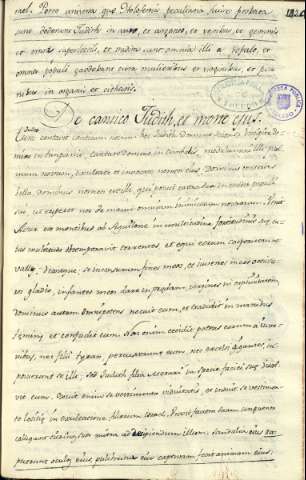 rael. Porro universa que Holofernis peculiaria fuisse probata
sunt dederunt Judith in auro, et argento, et vestibus, et gemmis
et omni supellectili, et tradita sunt omnia illi a populo, et
omnes populi gaudebant cum mulieribus et virginibus, et juve
nibus in organis et citharis.
De cantico Judith, et morte ejus.
Tunc cantavit canticum novum hoc Judith Domino dicens: Incipite do
mino in tympanis, cantate domino in cymbalis modulamini illi psal
mum novum, exaltate et invocate nomen ejus. Dominus conterens
bella, dominus nomen est illi, qui posuit castra sua in medio populi
sui, ut eriperet nos de manu omnium inimicorum nostrorum. Venit
Assur ex montibus ab Aquilone in multitudine fortitudinis suæ, cu
jus multitudo obturavit torrentes et equi eorum cooperuerunt
valles. Dixitque, se incensurum fines meos, et juvenes meos occisu
rum gladio, infantes meos dare in prædam, virgines in captivitatem,
dominus autem omnipotens nocuit eum, et tradidit in manibus
feminæ, et confudit eum. Non enim cecidit potens eorum a juve
nibus, nec filii tytan percusserunt eum, nec excelsi gigantes, im
posuerunt se illi, sed Judith filia Merari in specie faciei suæ dissol
vit eum. Exuit enim se vestimento viduitatis, et induit se vestimen
to lætitiæ in exultatione filiorum israel.
sandalia ejus ra
puerunt oculos ejus, pulchritudo ejus captivam fecit animam ejus,